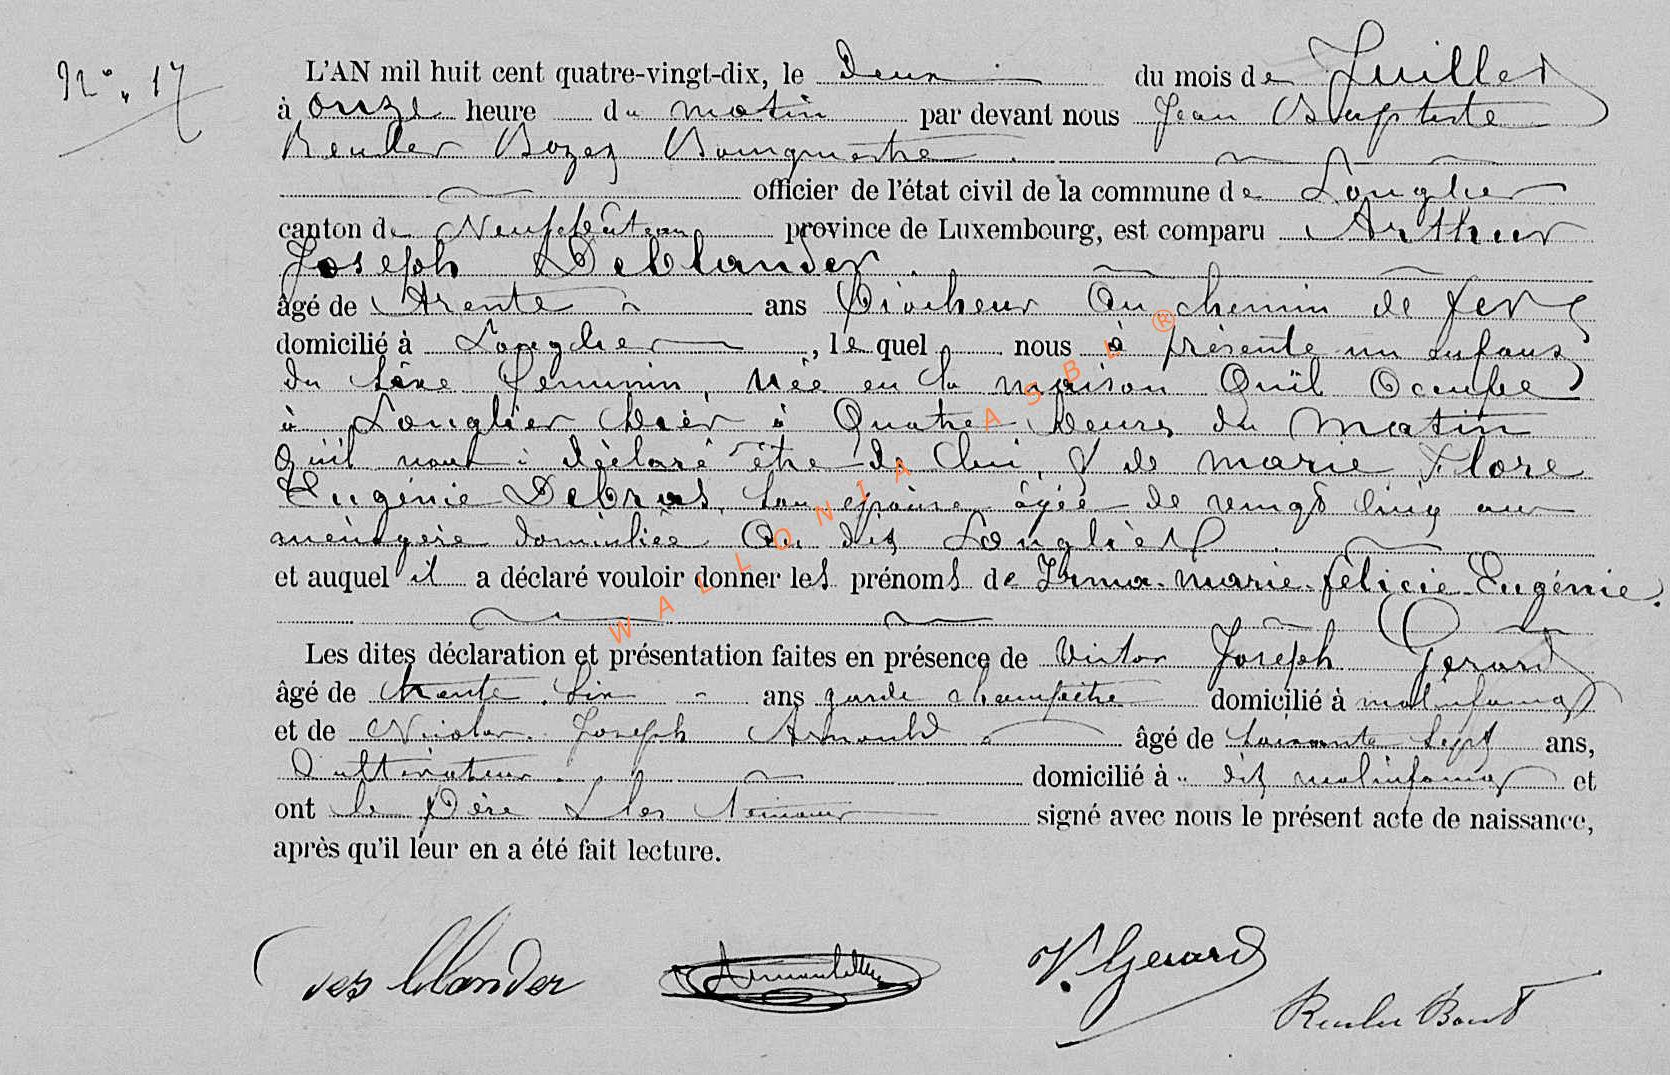 N° 17
L'AN mil huit cent quatre-vingt-dix, le Deux du mois de Juillet
à onze heure du matin par devant nous Jean Baptiste
Reuler Bozez Bourgmestre
officier de l'état civil de la commune de Longlier
canton de Neufchâteau province de Luxembourg, est comparu Arthur
Joseph DeBlander
âgé de trente ans Piocheur Au chemin de fer
domicilié à Longlier, le quel nous à présenté un enfant
du sèxe féminin, née en la maison Qu'il Occupe
à Longlier hièr à Quatre heures du matin
Qu'il nous à dèclaré être de lui, & de marie Flore
Eugénie DeBras, son épouse âgée de vingt cinq ans
ménagère domiciliée Au dit Longlier
et auquel il a déclaré vouloir donner les prénoms de Irma-marie-félicie-Eugénie.
Les dites déclaration et présentation faites en présence de Victor Joseph Gerard
âgé de trente six ans garde champêtre domicilié à molinfaing
et de Nicolas Joseph Arnould âgé de soixante sept ans,
Cultivateur domicilié à dit molinfaing et
ont le Père & les témoins signé avec nous le présent acte de naissance,
après qu'il leur en a été fait lecture.
Arnould
V. Gerard
Reuler Bourg
WALLONIA ASBL ®